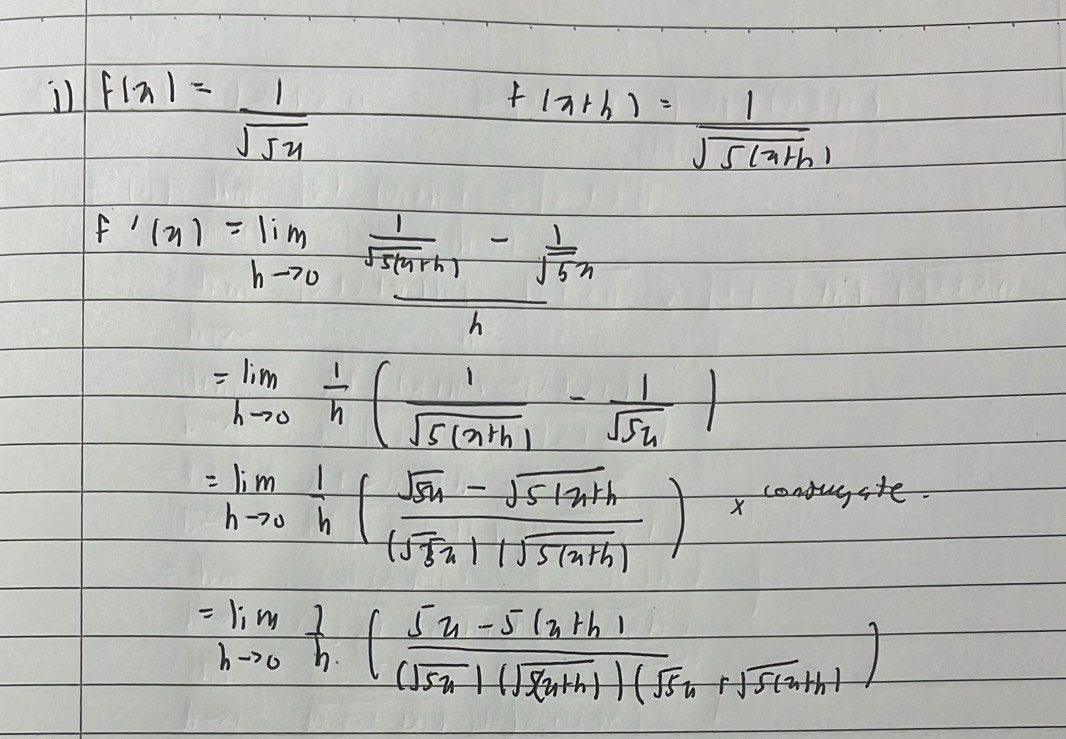 j) f(x) = 1/√5x    f(x+h) = 1/√5(x+h)
f'(x) = lim h→0 (1/√5(x+h) - 1/√5x)/h
= lim h→0 1/h (1/√5(x+h) - 1/√5x)
= lim h→0 1/h ((√5x - √5(x+h)/(√5x)(√5(x+h))) x conjugate.
= lim h→0 1/h. ((5x - 5(x+h)/(√5x)(√5(x+h))(√5x + √5(x+h))